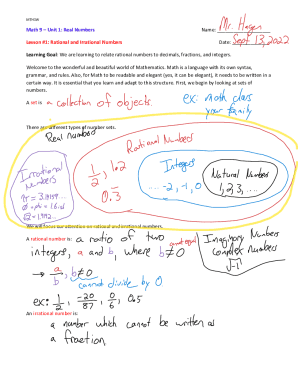 Math 9 – Unit 1: Real Numbers
Name: Mr. Hagen
Lesson #1: Rational and Irrational Numbers
Date: Sept 13, 2022
Learning Goal: We are learning to relate rational numbers to decimals, fractions, and integers.
Welcome to the wonderful and beautiful world of Mathematics. Math is a language with its own syntax,
grammar, and rules. Also, for Math to be readable and elegant (yes, it can be elegant), it needs to be written in a
certain way. It is essential that you learn and adapt to this structure. First, we begin by looking at sets of
numbers.
A set is a collection of objects.
ex: math class
your family
There are different types of number sets.
Real numbers
Rational Numbers
1/2, 1.2
0.3̅
Integers
... -2, -1, 0
Natural Numbers
1, 2, 3, ...
Irrational
Numbers
We will focus our attention on rational and irrational numbers.
A rational number is: a ratio of two
integers, a and b, where b≠0
not equal
→ a/b, b≠0
cannot divide by 0
ex: 1/2, -20/87, 0/6, 0.5
Imaginary Numbers
complex numbers
√-1
An irrational number is:
a number which cannot be written as
a fraction.